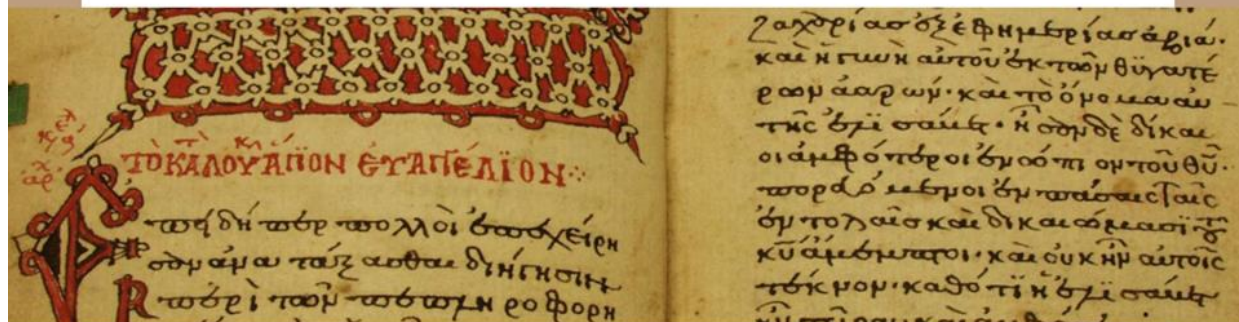 ΤῸ ΚΑΤ ΛΟΥΚ ἍΓΙΟΝ ΕΥΑΓΓΕΛΙΟΝ
Ἐπειδήπερ πολλοὶ ἐπεχείρη
σαν ἀνατάξασθαι διήγησιν
περὶ τῶν πεπληροφορη
ζαχαρίας ἐξ ἐφημερίας ἀβιά·
καὶ ἡ γυνὴ αὐτοῦ ἐκ τῶν θυγατέ
ρων ἀαρών· καὶ τὸ ὄνομα αυ
τῆς ἐλισάβετ· ἦσαν δὲ δίκαι
οι ἀμφότεροι ἐνώπιον τοῦ θῦ·
πορευόμενοι ἐν πάσαις ταῖς
ἐντολαῖς καὶ δικαιώμασι τοῦ
κῦ ἄμεμπτοι· καὶ οὐκ ἦν αὐτοῖς
τέκνον· καθότι ἡ ἐλισάβετ